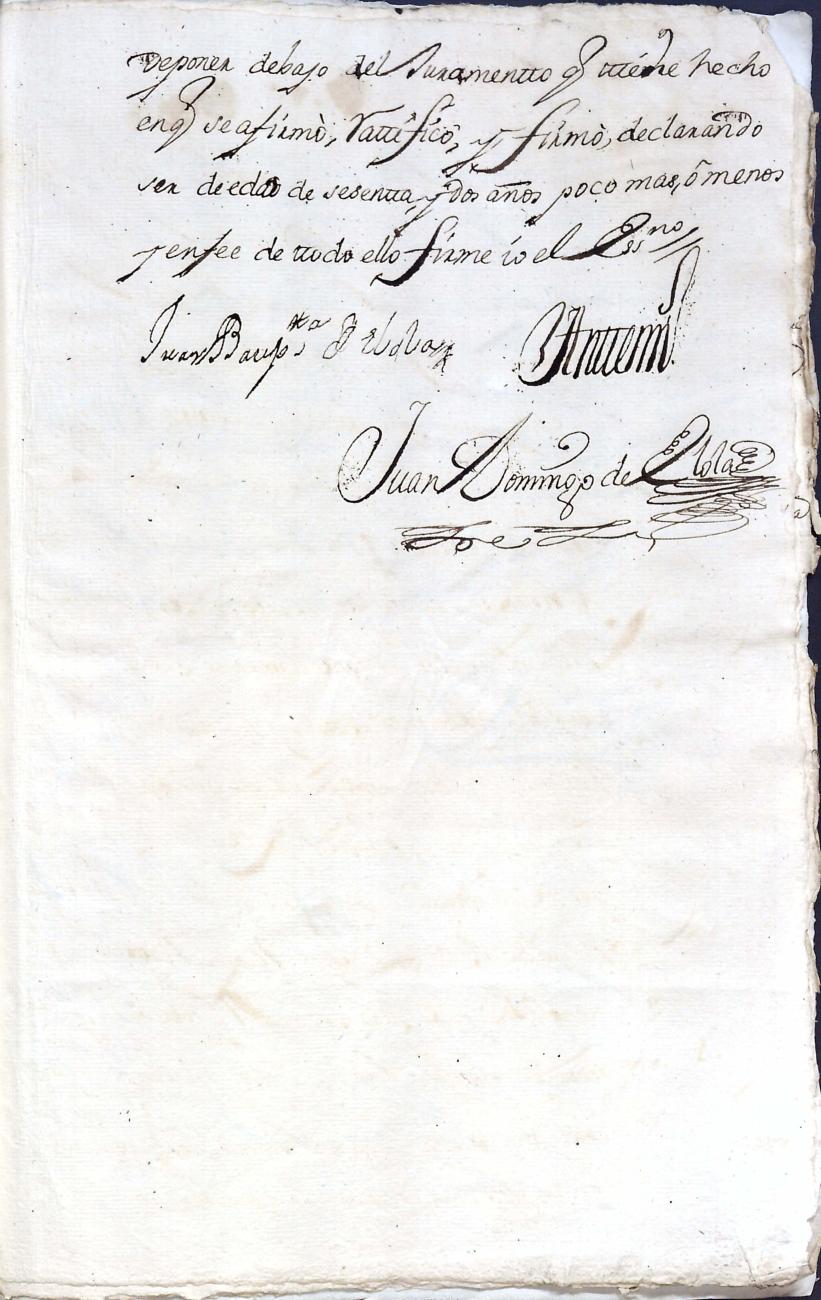 deponer debajo del Juramentto q̃ ttiene hecho
enq̃ seafirmò, rattificò, y firmò, declarando
ser deedad de sesentta y dos años poco mas, ò menos
yenfee de ttodo ello firme io el Essno
Juan Baupta de
Anttemi
Juan Domingo de